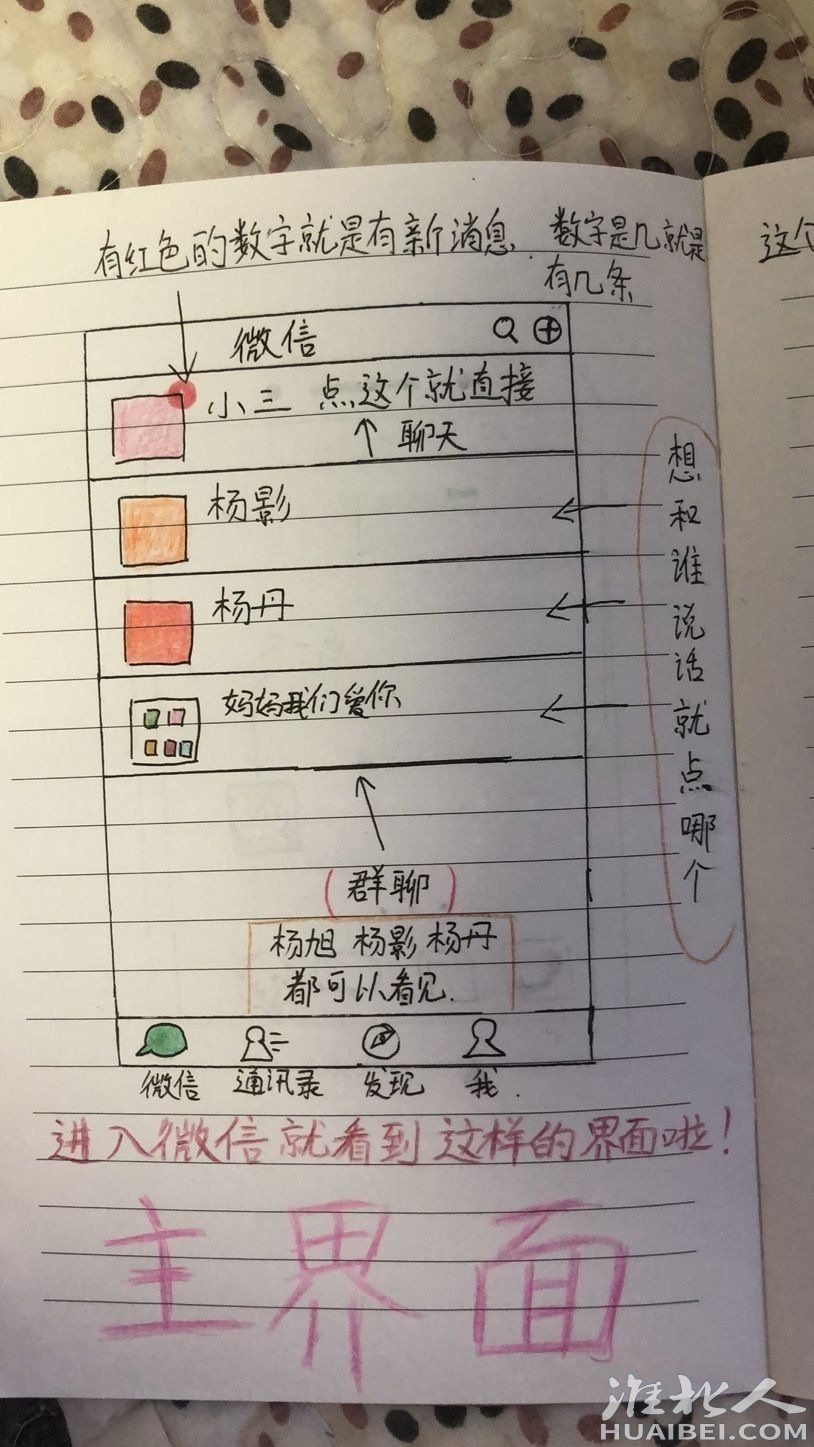 有红色的数字就是有新消息. 数字是几就是
有几条
这个
微信
小三 点这个就直接
聊天
杨影
杨丹
妈妈我们爱你
想和谁说话就点哪个
(群聊)
杨旭 杨影 杨丹
都可以看见.
微信 通讯录 发现 我.
进入微信就看到这样的界面啦!
主界面
淮北人
HUAIBEI.COM